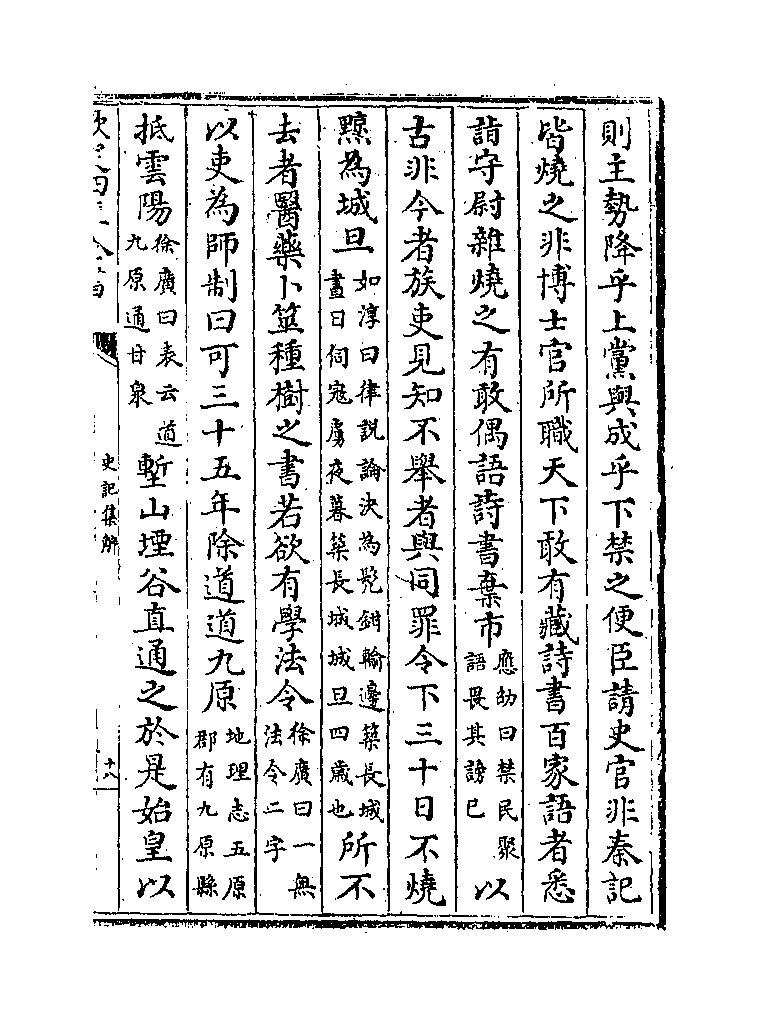 則主勢降乎上黨與成乎下禁之便臣請史官非秦記
皆燒之非博士官所職天下敢有藏詩書百家語者悉
詣守尉雜燒之有敢偶語詩書棄市應劭曰禁民聚語畏其謗已以
古非今者族吏見知不舉者與同罪令下三十日不燒
黥為城旦如淳曰律說論決為髠鉗輸邊築長城晝日伺寇虜夜暮築長城城旦四歲也所不
去者醫藥卜筮種樹之書若欲有學法令徐廣曰一無法令二字
以吏為師制曰可三十五年除道道九原地理志五原郡有九原縣
抵雲陽徐廣曰表云道九原通甘泉塹山堙谷直通之於是始皇以
史記集解
十八